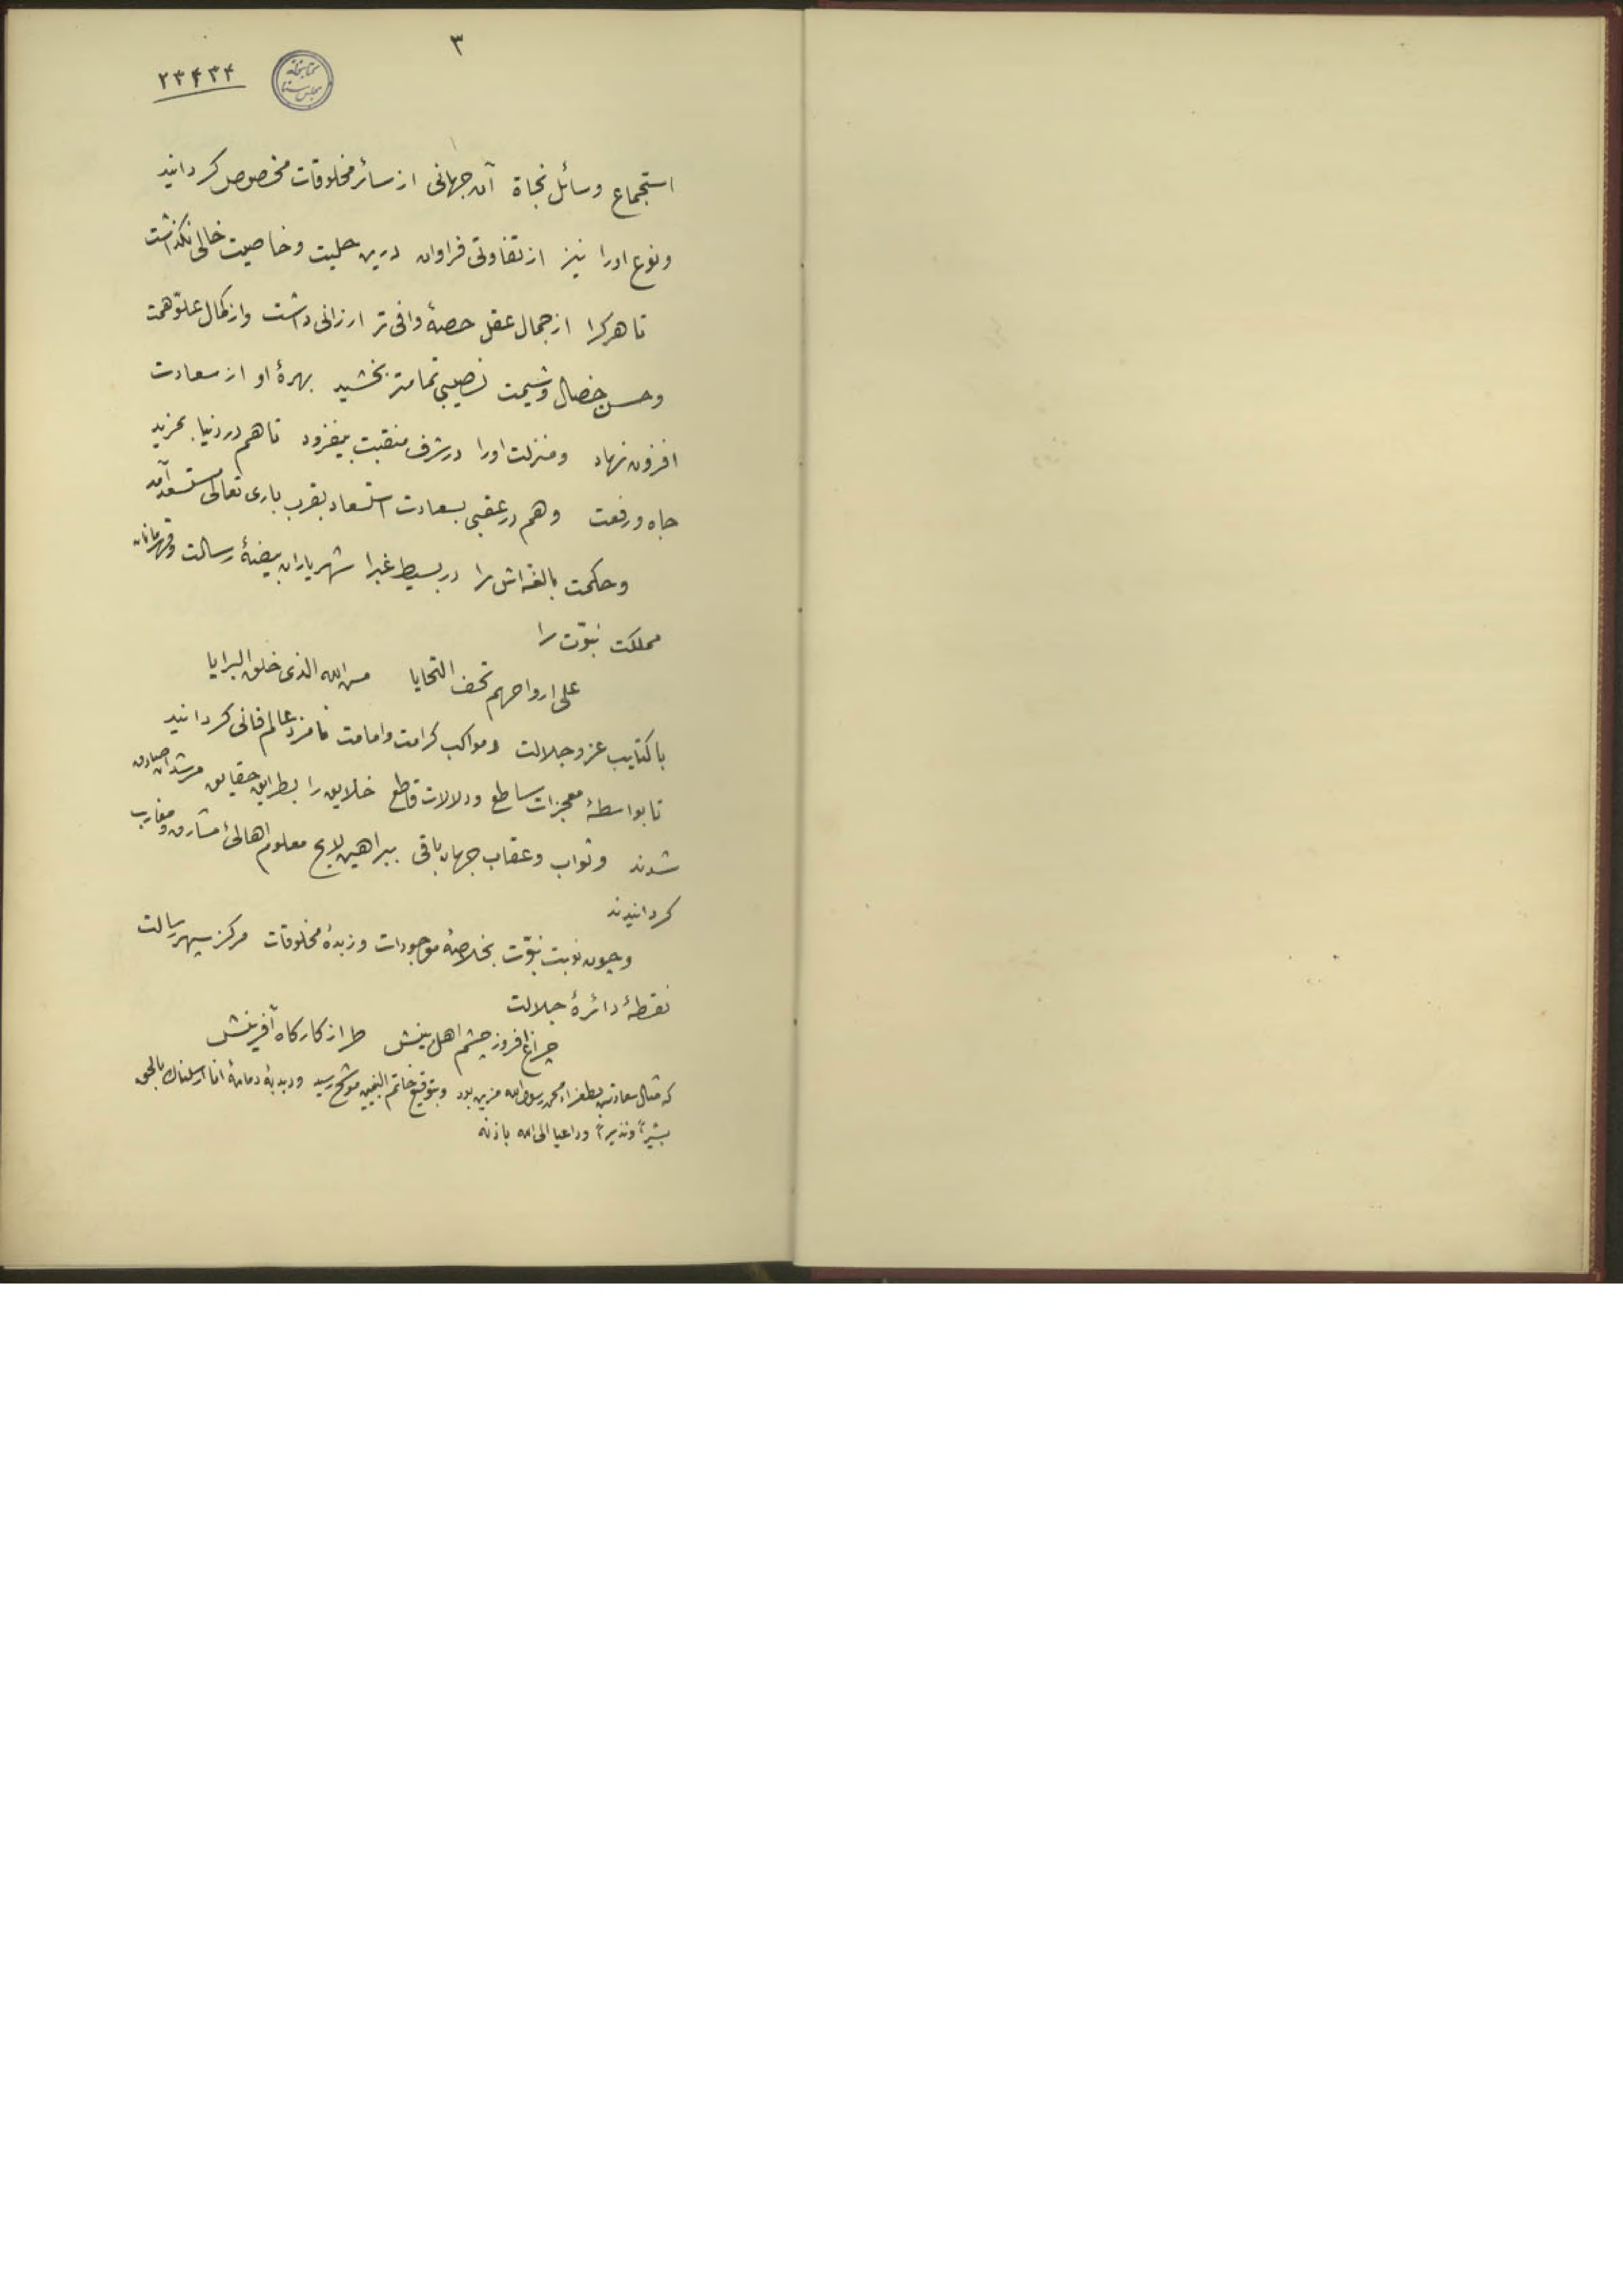 ۳
۲۳۴۳۴
کتابخانه مجلس سنا
استجماع وسائل نجاة آن جهانی از سائر مخلوقات مخصوص کردانید
ونوع اورا نیز از تفاوتی فراوان درین حلیت وخاصیت خالی نکذاشت
تا هر کرا از جمال عقل حصهٔ وافی تر ارزانی داشت واز کمال علوّ همت
وحسن خصال وشیمت نصیبی تمامتر بخشید بهرهٔ او از سعادت
افزون نهاد ومنزلت اورا در شرف منقبت بیفزود تا هم در دنیا بمزید
جاه ورفعت وهم در عقبی بسعادت استسعاد بقرب باری تعالی مستسعد آمد
وحکمت بالغه‌اش را در بسیط غبرا شهریاران بیضهٔ رسالت وقهرمانان
مملکت نبوّت را
علی ارواحهم تحف التحایا من الله الذی خلق البرایا
با کتایب عز وجلالت ومواکب کرامت وامامت نامزد عالم فانی کردانید
تا بواسطهٔ معجزات ساطع ودلالات قاطع خلایق را بطرایق حقایق مرشدان صادق
شدند وثواب وعقاب جهان باقی ببراهین لایح معلوم اهالیٔ مشارق ومغارب
کردانیدند
وچون نوبت نبوّت بخلاصهٔ موجودات وزبدهٔ مخلوقات مرکز سپهر رسالت
نقطهٔ دائرهٔ جلالت
چراغ افروز چشم اهل بینش طراز کارکاه آفرینش
که مثال سعادتش بطغراء محمد رسول الله مزین بود وبتوقیع خاتم النبیین موشح رسید ودبدبهٔ دمامهٔ انا ارسلناك بالحق
بشیراً ونذیراً وداعیا الی الله باذنه